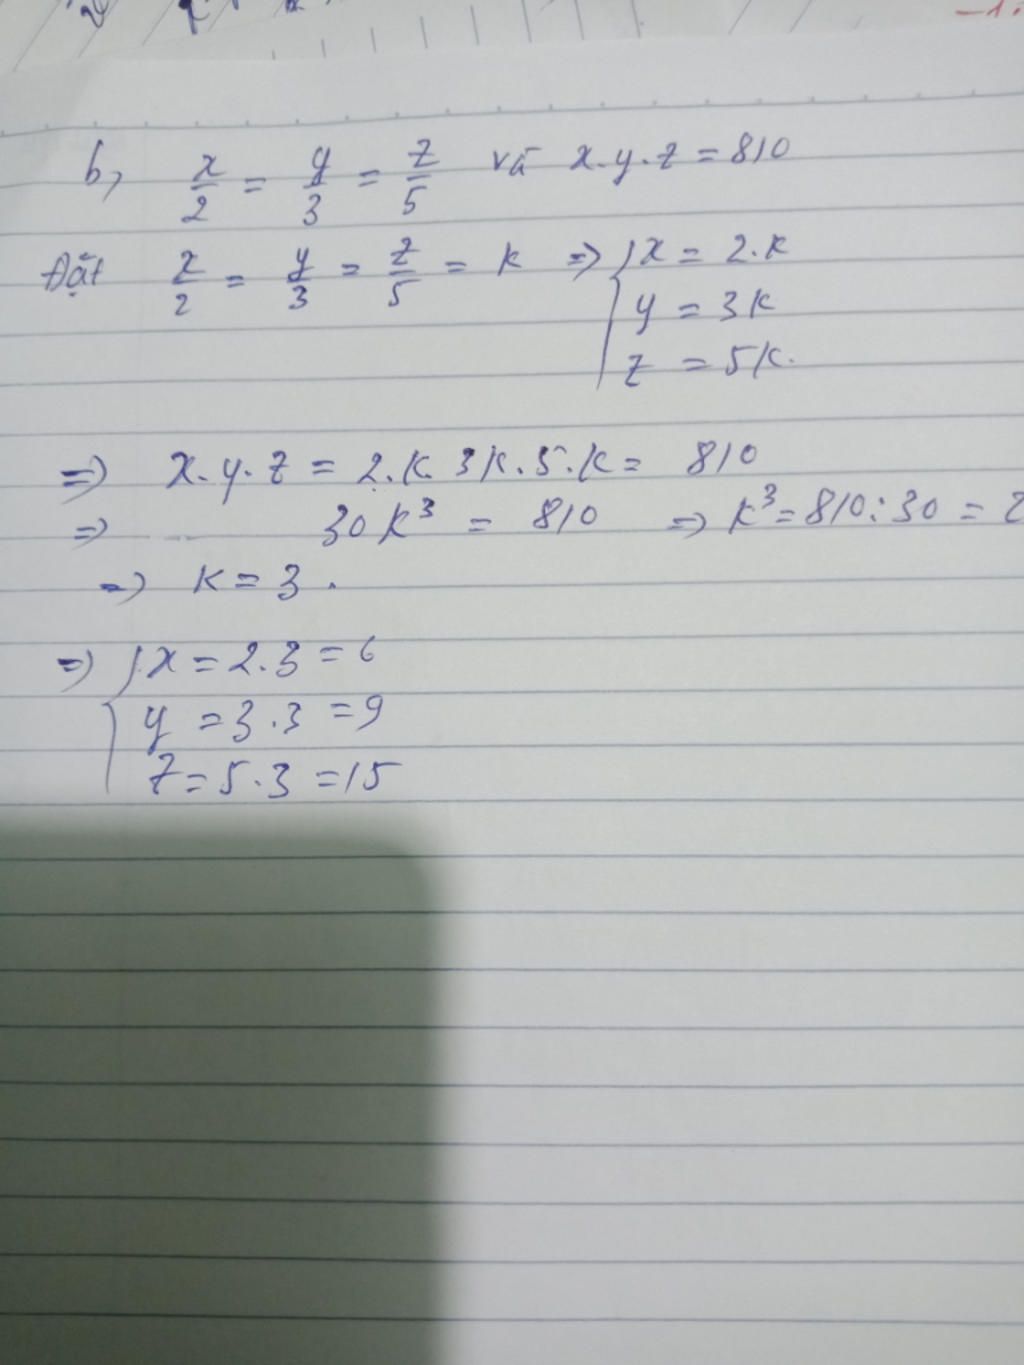 b, x/2 = y/3 = z/5 và x.y.z = 810
Đặt x/2 = y/3 = z/5 = k => { x = 2.k
y = 3k
z = 5k.
=> x.y.z = 2.k.3k.5.k = 810
=> 30k³ = 810 => k³ = 810:30 = 2
=> k = 3.
=> { x = 2.3 = 6
y = 3.3 = 9
z = 5.3 = 15